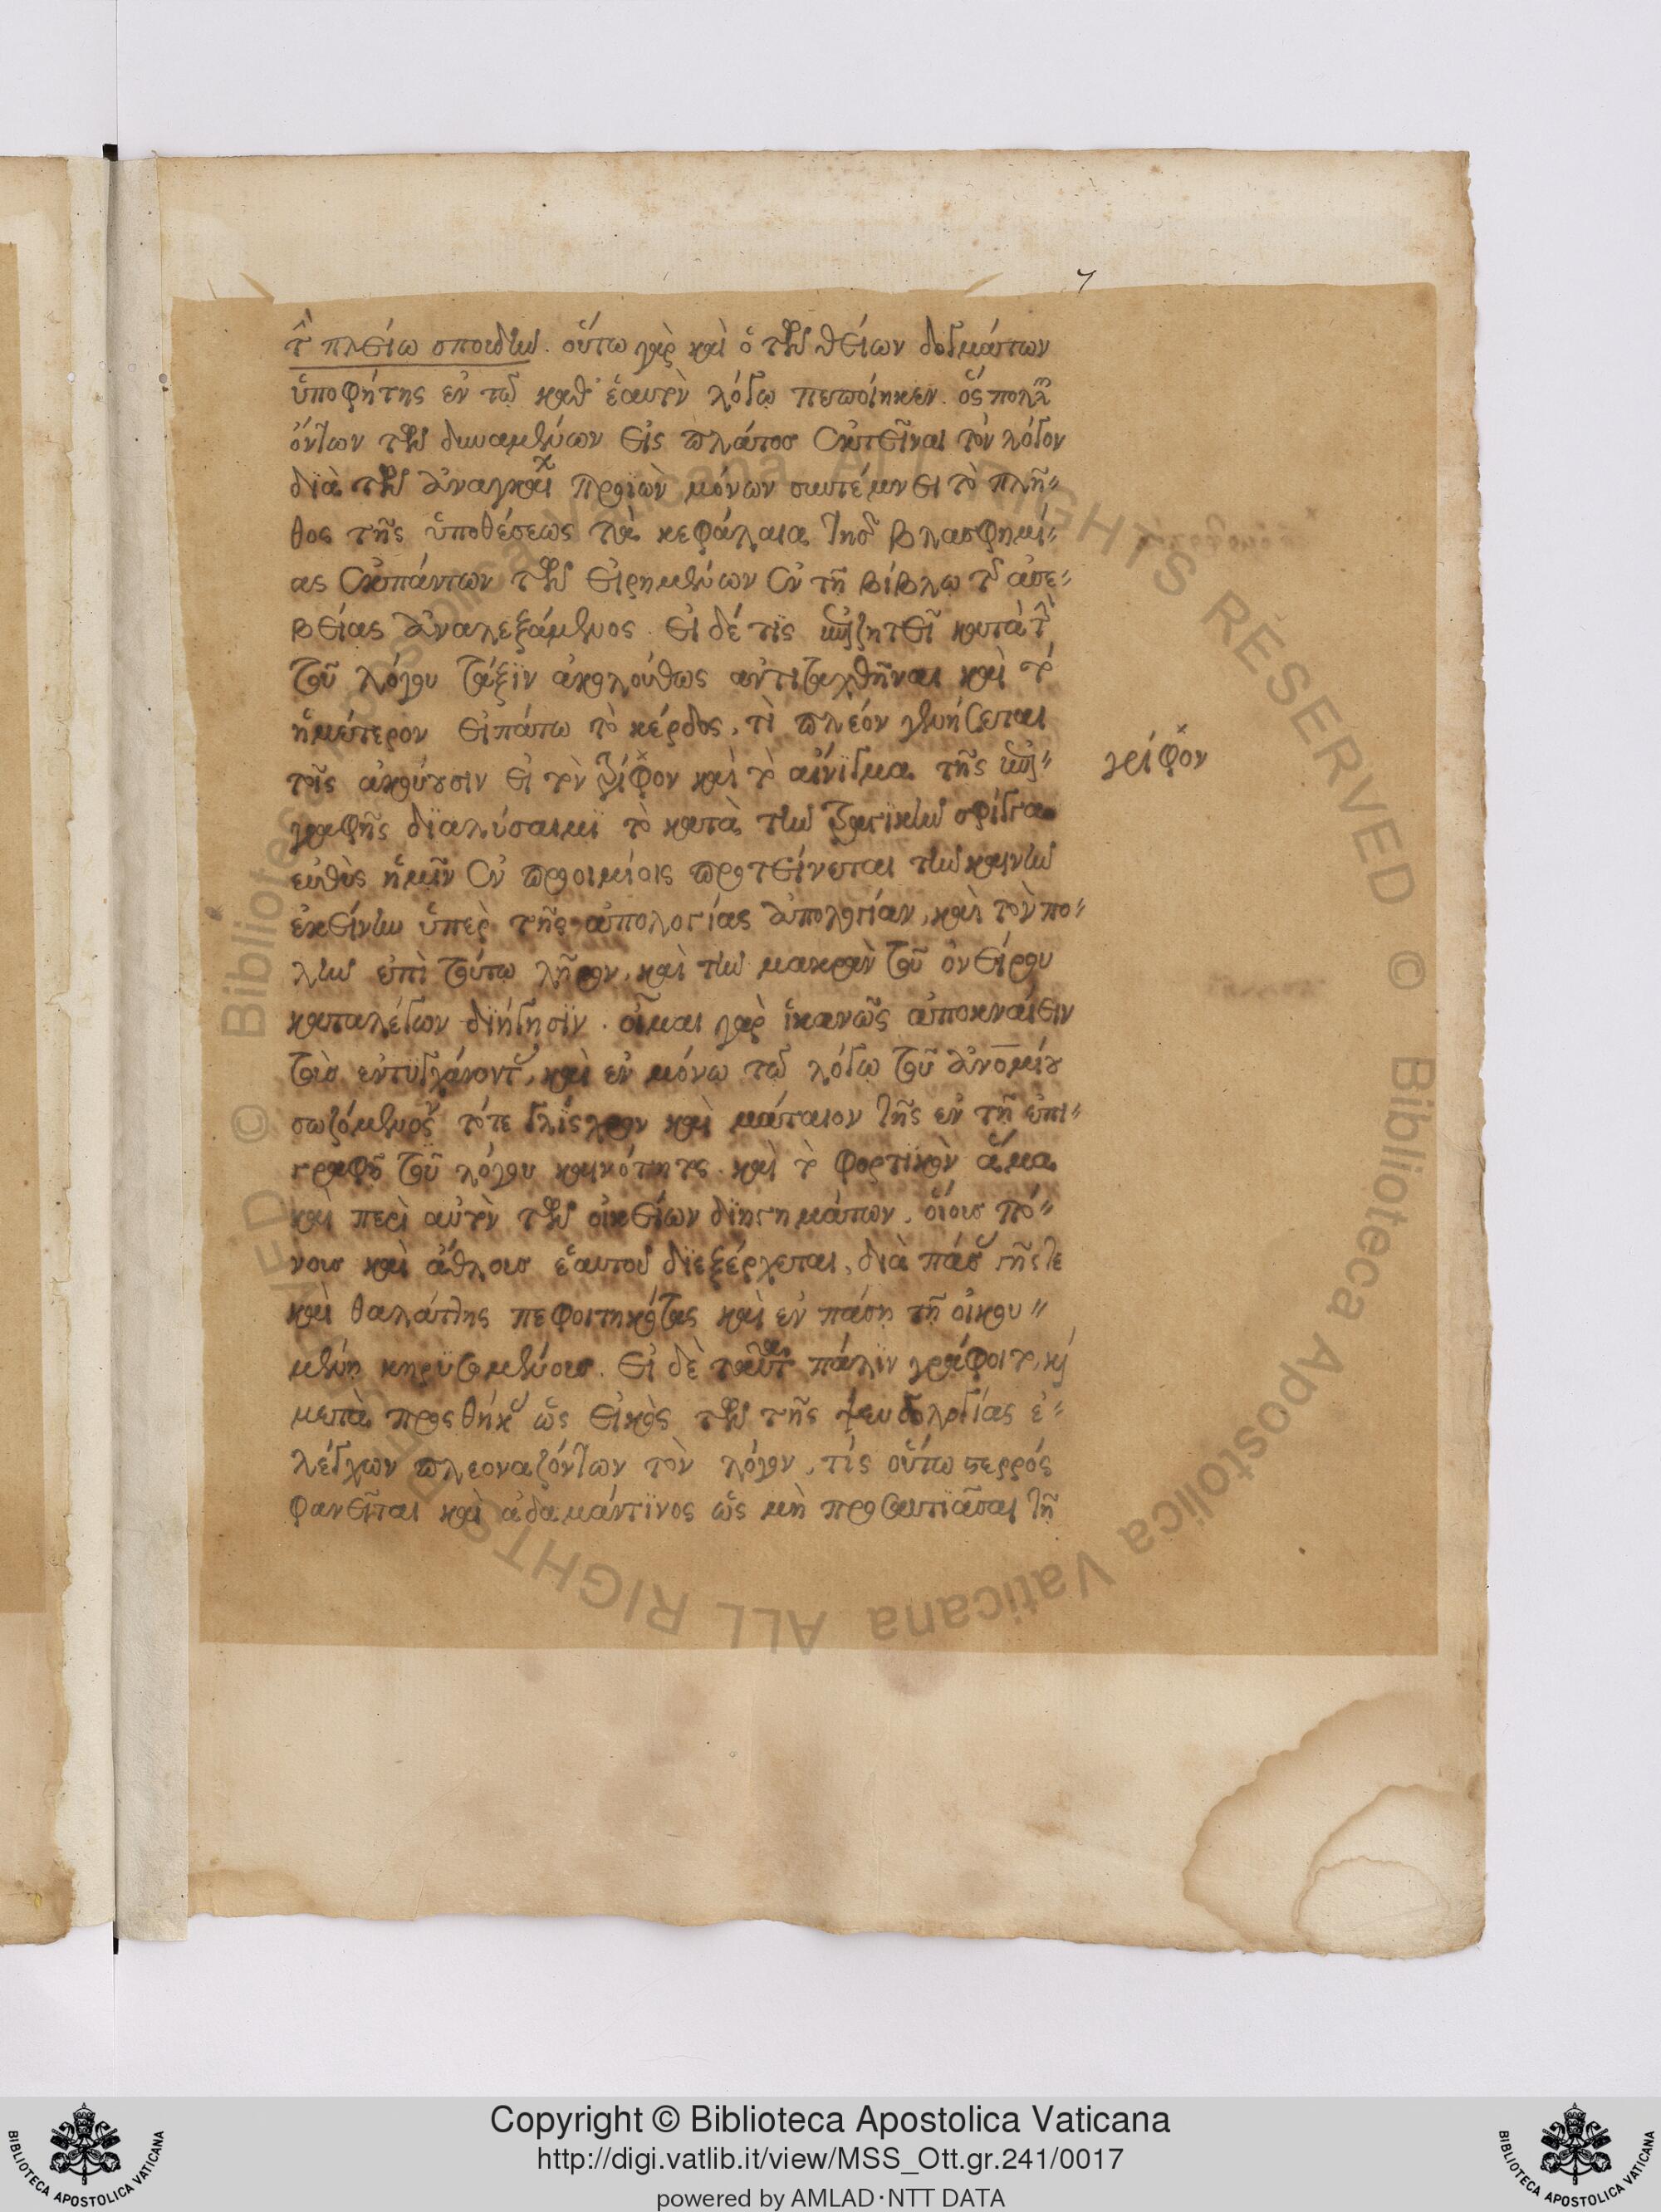 7
τὴν πλείω σπουδὴν. οὕτω γὰρ καὶ ὁ τῶν θείων δογμάτων
ὑποφήτης ἐν τῷ καθ' ἑαυτὸν λόγῳ πεποίηκεν. ὃς πολλῶν
ὄντων τῶν δυναμένων εἰς πλάτος ἐκτεῖναι τὸν λόγον
διὰ τῶν ἀναγκαίων προϊὼν μόνων συντέμνει τὸ πλῆ-
θος τῆς ὑποθέσεως τὰ κεφάλαια τῆς βλασφημί-
ας ἐκ πάντων τῶν εἰρημένων ἐν τῇ βίβλῳ τῆς ἀσε-
βείας ἀναλεξάμενος. εἰ δέ τις ἐπιζητεῖ κατὰ τὴν
τοῦ λόγου τάξιν ἀκολούθως ἀντιταχθῆναι καὶ τὸ
ἡμέτερον εἰπάτω τὸ κέρδος, τί πλέον γενήσεται
τοῖς ἀκούουσιν εἰ τὸν γρίφον καὶ τὸ αἴνιγμα τῆς ἐπι-
γρίφον
γραφῆς διαλύσαιμι τὸ κατὰ τὴν τραγικὴν σφίγγα
εὐθὺς ἡμῖν ἐν προοιμίοις προτείνεται τὴν καινὴν
ἐκείνην ὑπὲρ τῆς ἀπολογίας ἀπολογίαν, καὶ τὸν πο-
λὺν ἐπὶ τούτῳ λῆρον, καὶ τὴν μακρὰν τοῦ ὀνείρου
καταλέγων διήγησιν. οἶμαι γὰρ ἱκανῶς ἀποκναίειν
τοὺς ἐντυγχάνοντας, καὶ ἐν μόνῳ τῷ λόγῳ τοῦ εὐνομίου
σωζόμενος τό τε γλίσχρον καὶ μάταιον τῆς ἐν τῇ ἐπι-
γραφῇ τοῦ λόγου καινότητος. καὶ τὸ φορτικὸν ἅμα
καὶ περὶ αὐτὸν τῶν οἰκείων διηγημάτων. οἵοις πό-
νοις καὶ ἄθλοις ἑαυτοῦ διεξέρχεται, διὰ πάσης γῆς τε
καὶ θαλάττης πεφοιτηκότας καὶ ἐν πάσῃ τῇ οἰκου-
μένῃ κηρυσσομένους. εἰ δὲ ταῦτα πάλιν γράφοιτο, καὶ
μετὰ προσθήκης ὡς εἰκὸς τῶν τῆς ψευδολογίας ἐ-
λέγχων πλεοναζόντων τὸν λόγον, τίς οὕτω στερρός
φανεῖται καὶ ἀδαμάντινος ὡς μὴ προσαυτιᾶσαι τῇ
Copyright © Biblioteca Apostolica Vaticana
http://digi.vatlib.it/view/MSS_Ott.gr.241/0017
powered by AMLAD·NTT DATA
BIBLIOTECA APOSTOLICA VATICANA
BIBLIOTECA APOSTOLICA VATICANA